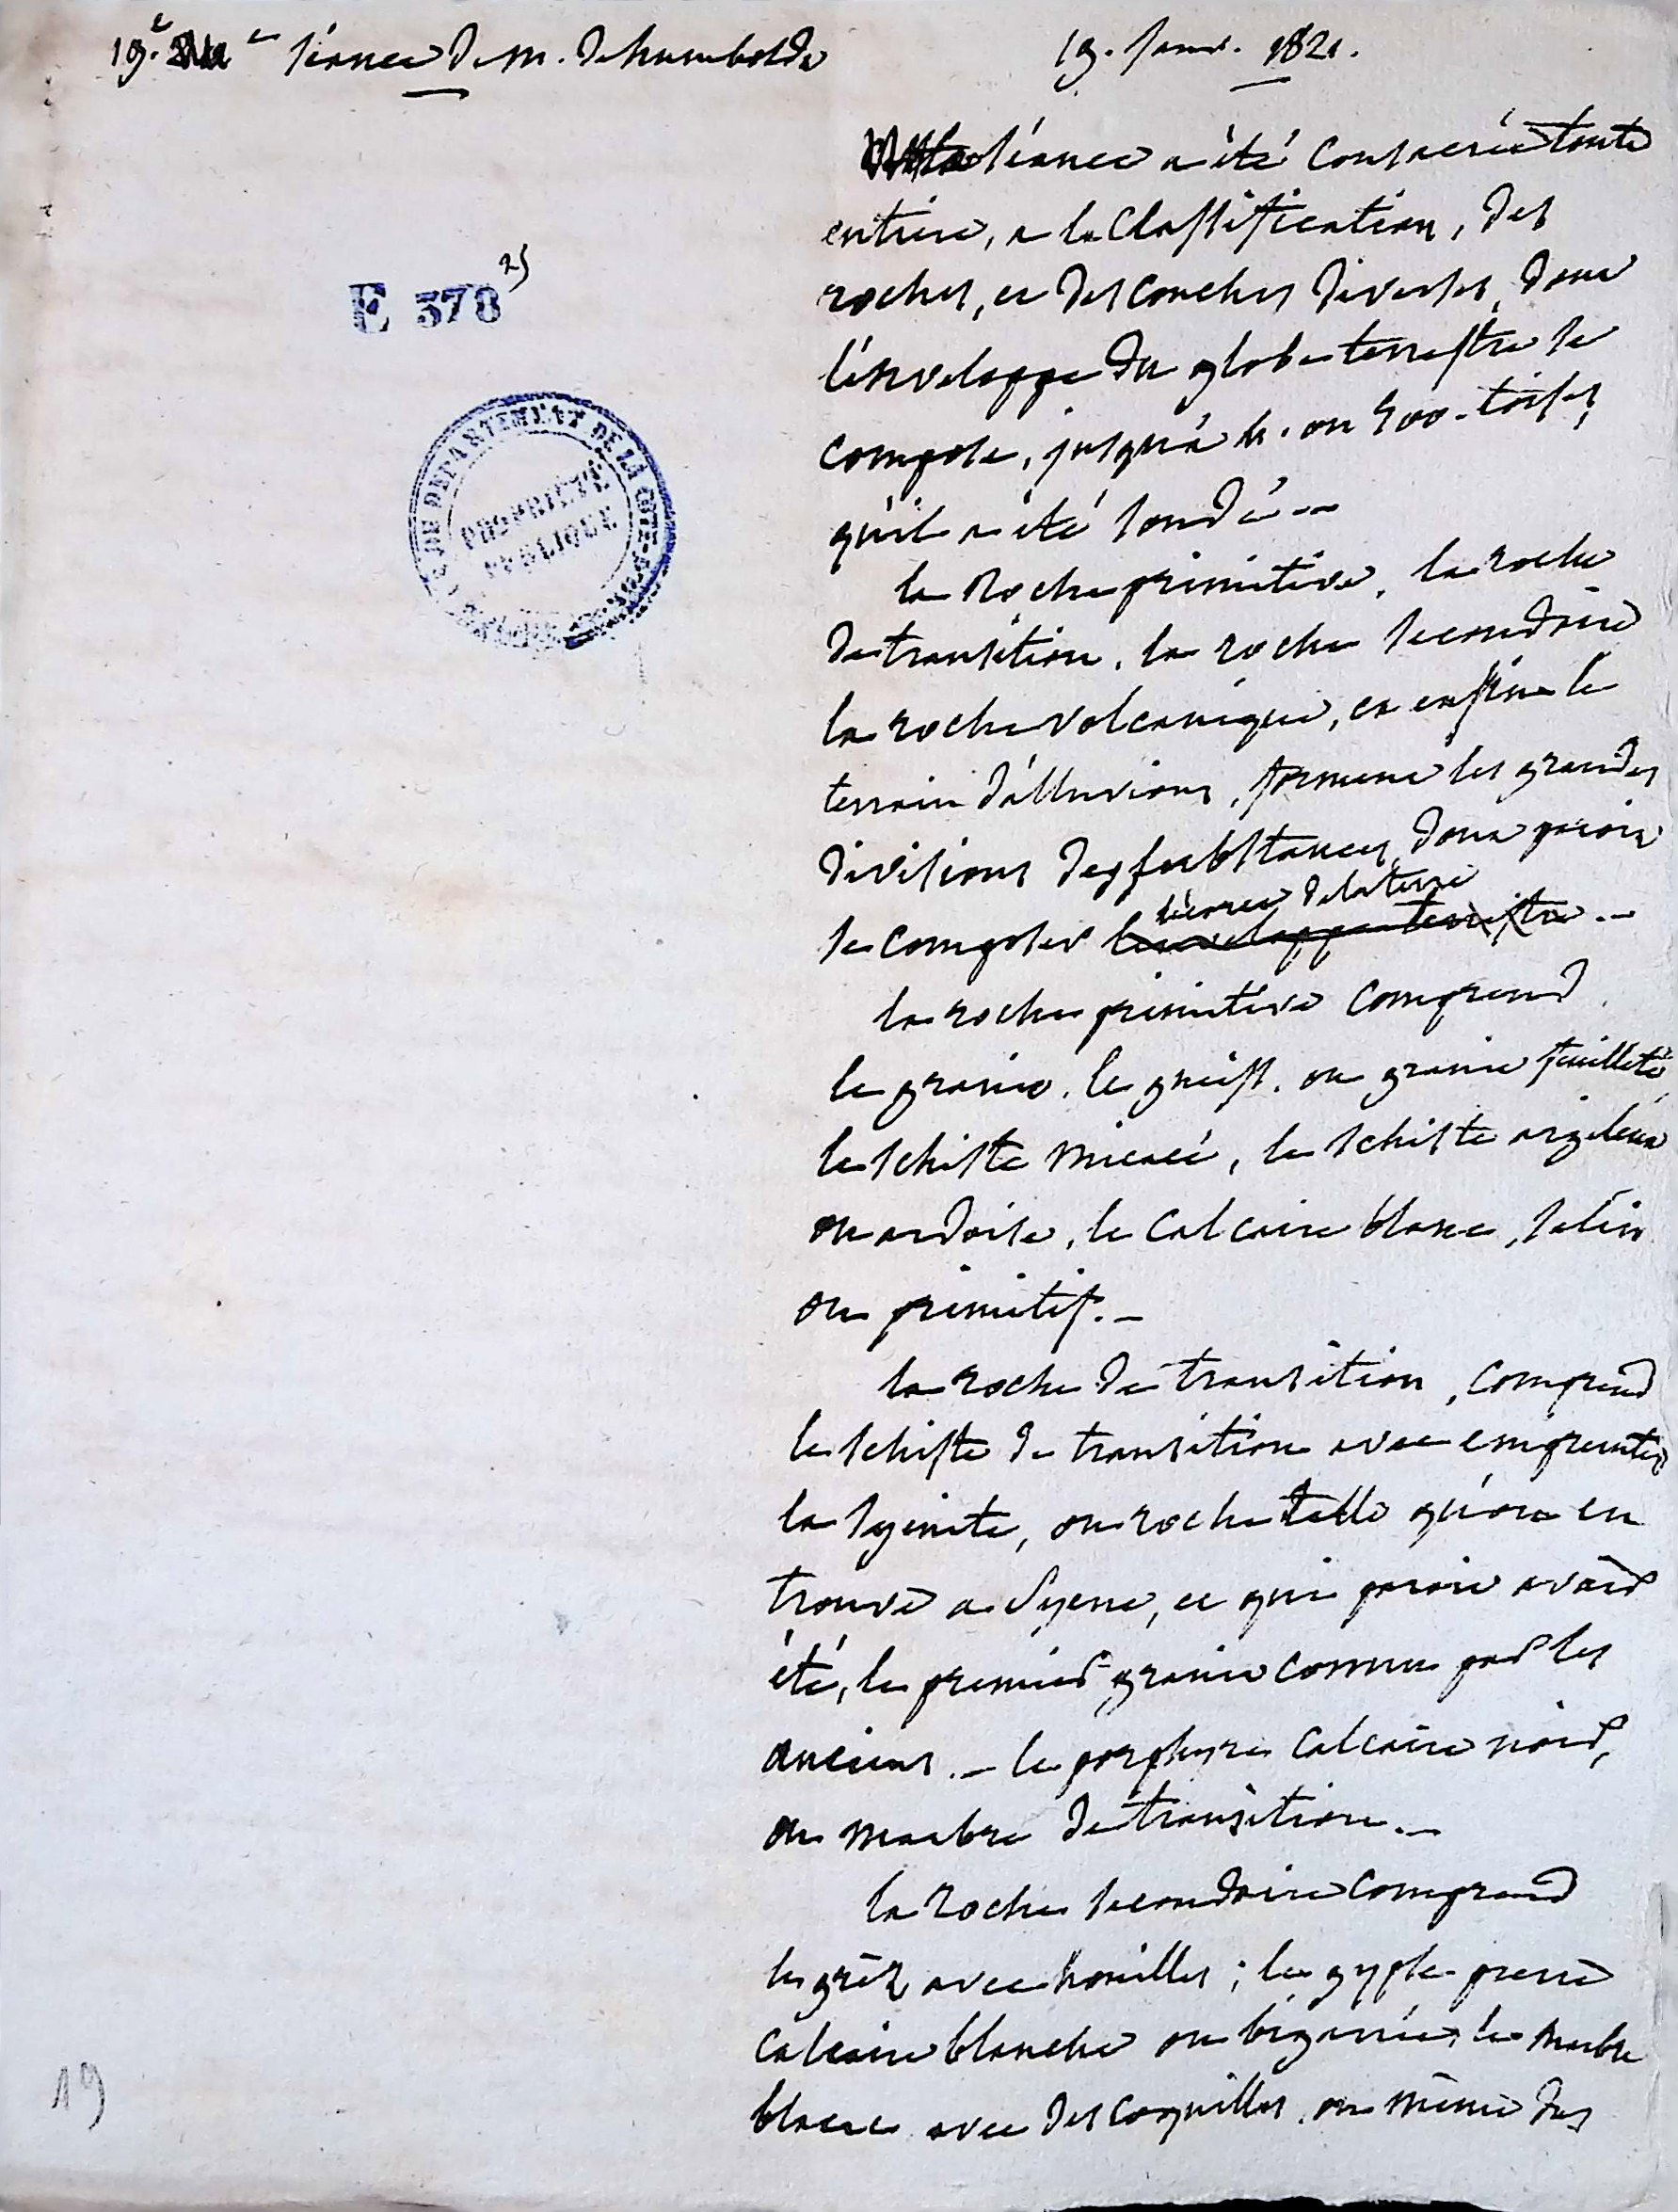 19.e séance de m. de humboldt
19. Janv. 1821.
séance a été consacrée toute
entière, a la Classification, des
roches, et des Couches diverses, dont
l'énveloppe du globe terrestre se
compose, jusqu'à ou 500 - toises,
qu'il a été sondé --
la Roche primitive, la roche
de transition, la roche secondaire
la roche volcanique, et enfin le
terrain d'álluvions, forment les grandes
divisions des substances, dont paroit
se composer l'enveloppe terrestre --
l'écorce de la terre
la roche primitive comprend
le granit, le gneiss, ou granit feuilleté
le schiste micacé, le schiste argileux
ou ardoise, le Calcaire blanc, salin
ou primitif. -
la roche de transition, comprend
le schiste de transition avec empreintes
la syenite, ou roche telle qu'on en
trouve a Syene, et qui paroit avoir
été, le premier granit connu par les
anciens. - le porphyre Calcaire noir,
ou marbre de transition. -
la Roche secondaire comprend
le grèz avec houilles ; le gypse pierre
Calcaire blanche ou bigarrée, le marbre
blanc avec des Coquilles, ou même des
E 378
25
DU DÉPARTEMENT DE LA CÔTE-D'OR
PROPRIÉTÉ
PUBLIQUE
19